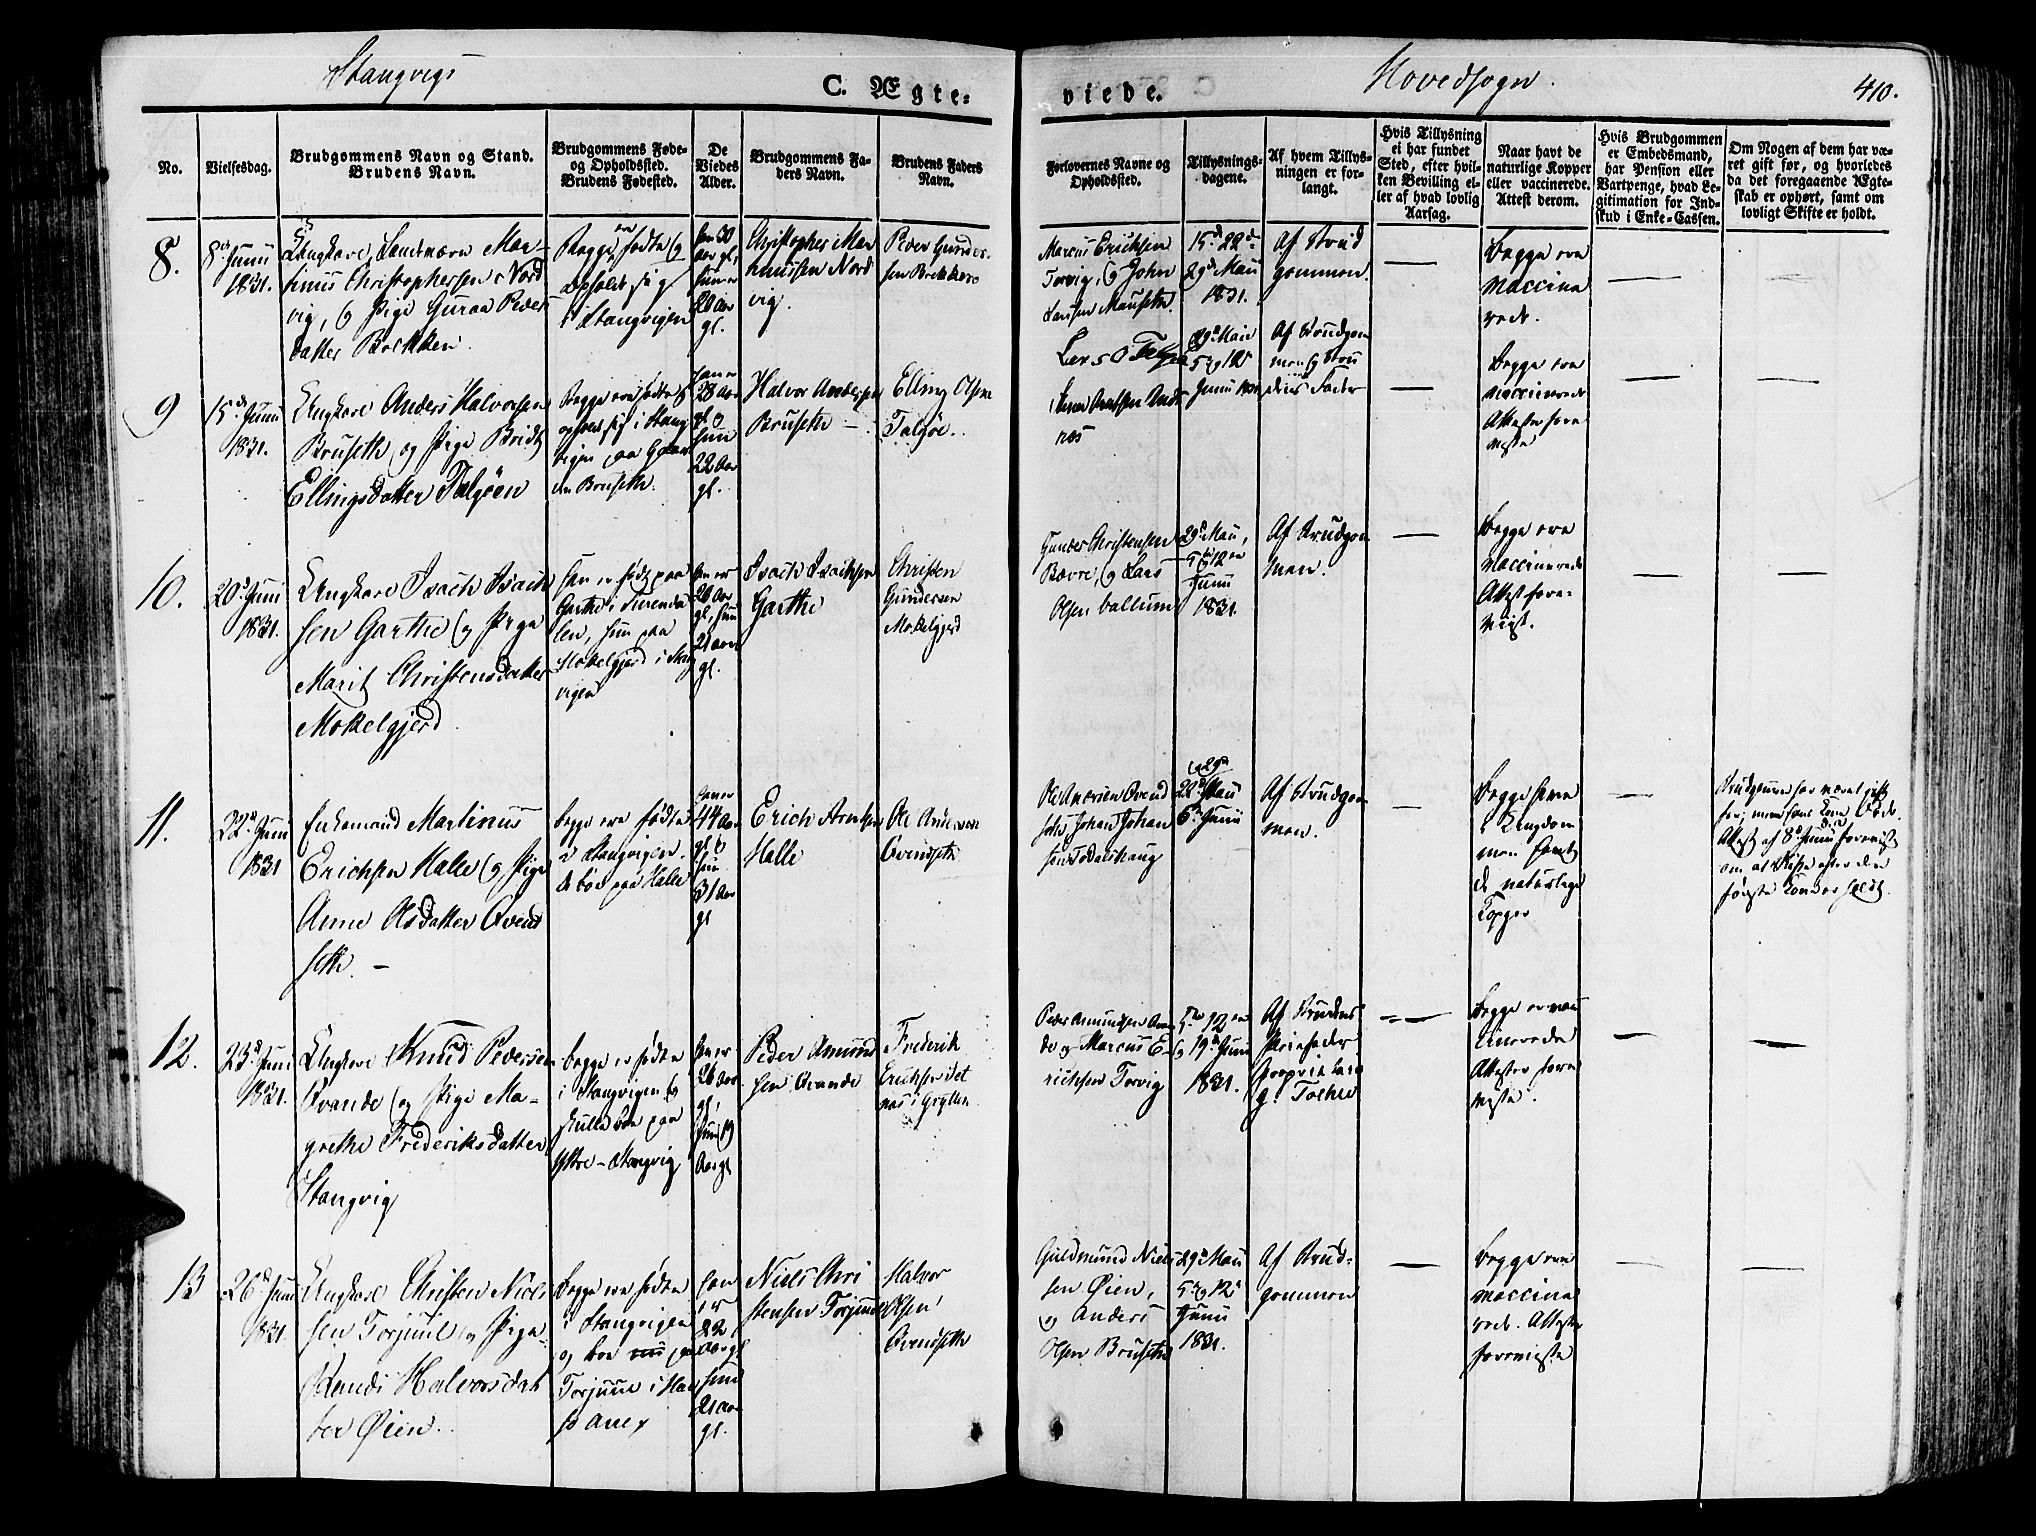 Stangvigs
Hovedsogn.
410.
C. Ægte-
viede.
No.
Vielsesdag.
Brudgommens Navn og Stand.
Brudens Navn.
Brudgommens Føde-
og Opholdssted.
Brudens Fødested.
De
Viedes
Alder.
Brudgommens Fa-
ders Navn.
Brudens Faders
Navn.
Forlovernes Navne og
Opholdssted.
Tillysnings-
dagene.
Af hvem Tillys-
ningen er for-
langt.
Hvis Tillysning
ei har fundet
Sted, efter hvil-
ken Bevilling el-
ler af hvad lovlig
Aarsag.
Naar havt de
naturlige Kopper
eller vaccinerede.
Attest derom.
Hvis Brudgommen
er Embedsmand,
har Pension eller
Vartpenge, hvad Le-
gitimation for Ind-
skud i Enke-Cassen.
Om Nogen af dem har væ-
ret gift før, og hvorledes
da det foregaaende Ægte-
skab er ophørt, samt om
lovligt Skifte er holdt.
8.
8de Junii
1831.
Ungkarl, Landværn Mar-
tinus Christophersen Nord
vig, og Pige Guraa Peders
datter Brekken.
Begge ere fødte og
opholde sig
i Stangvigen
han 30
aar gl,
hun er
20 aar
gl.
Christopher Mar
tinussen Nord
vig.
Peder Gunder
sen Brekken
Marcus Erichsen
Torvig, og John
Larsen Mauseth
15de 22de
29de Maii
1831.
Af Brud
gommen.
Begge ere
vaccine
rede.
9
15de Junii
1831.
Ungkarl Anders Halvorsen
Bruseth og Pige Bridt
Ellingsdatter Talgöen
Begge ere fødte og
opholde sig i Stang
vigen paa Gaar
den Bruseth.
han er
28 Aar
gl og
hun
22 Aar
gl.
Halvor Andersen
Bruseth
Elling Olsen
Talgöe.
Lars O Talgöe
29de Maii
5 og 12
Junii 1831
Af Brudgom
men og Bru
dens Fader
Begge ere
vaccinerede
Attester fore
viste
10.
20de Junii
1831.
Ungkarl Isach Isach
sen Garthe og Pige
Marit Christensdatter
Mokelgjerd.
han er født paa
Garthe i Surenda
len, hun paa
Mokelgjerd i Stang
vigen
han er
28 Aar
gl, hun
21 aar
gl.
Isach Isachsen
Garthe
Christen
Gundersen
Mokelgjerd
Gunder Christensen
Bævre, og Lars
Olsen
29de Maii,
5 og 12
Junii
1831.
Af Brudgom
men.
Begge ere
vaccinerede
Attest fore-
viist.
11.
22de Junii
1831
Enkemand Martinus
Erichsen Halle og Pige
Anne Olsdatter Qvend
seth.
begge ere fødte
i Stangvigen.
de boe paa Halle
han er
44 Aar
gl og
hun
31 Aar
gl
Erich Arntsen
Halle
Ole Andersen
Qvendseth
Ole Andersen Qvend
seth, Johan Johan
sen Todalshaug
og 29de
22de Maii
5te Junii
Af Brudgom
men.
Begge have
i Ungdom
men havt
de naturlige
Kopper
Brudgommen har været gift
før, men hans Kone Døde.
Attest af 8de Junii foreviist
om at Skifte efter den
første Kone er holdt.
12.
23de Junii
1831.
Ungkarl Knud Pedersen
Qvande og Pige Ma-
grethe Frederiksdatter
Stangvig
begge er fødte
i Stangvigen og
skulle boe paa
Ystre-Stangvig
han er
26 aar
gl,
hun 19
Aar gl
Peder Amund
sen Qvande
Frederik
Erichsen Det
næs i Grytten
Peder Amundsen Qvan
de og Marcus E-
richsen Torvig
5te 12
og 19de Junii
1831.
Af Brudens
Pleiefader
Proprietær
Begge er vac
cinerede
Attester fore
viste.
13
26de Junii
1831.
Ungkarl Christen Niels
sen Torjuul og Pige
Randi Halvorsdat
ter Øien.
Begge ere fødte
i Stangvigen
og boe nu paa
Torjuul i Hal
saane
han
er
22
Aar gl
hun
21 aar
gl.
Niels Chri
stensen Torjuul
Halvor
Olsen
Qvendseth
Guldmund Niels
sen Øien,
og Anders
Olsen Bruseth
29de Maii
5 og 12te
Junii
1831.
Af Brud-
gommen
begge ere
vaccine
rede. Attester
foreviste